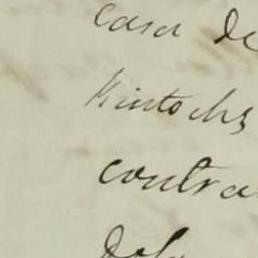 casa de
Kintochs
contra